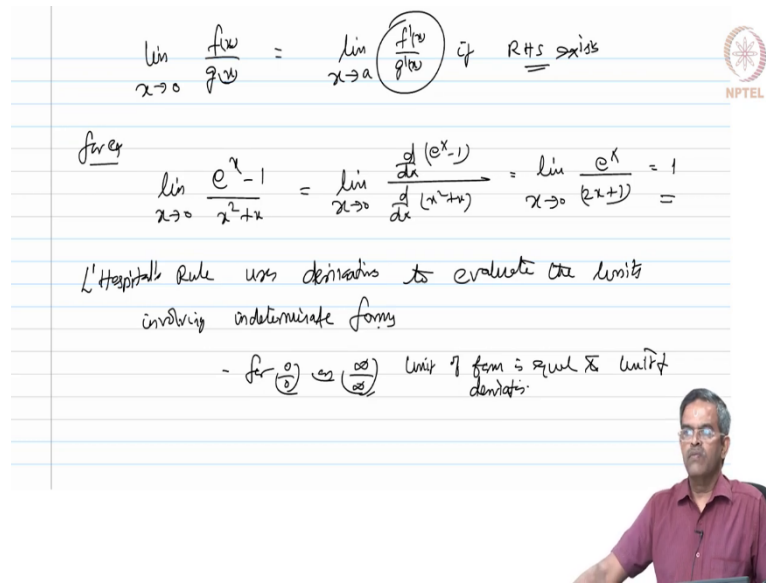 lim x→0 f(x)/g(x) = lim x→a f'(x)/g'(x) if RHS exists
NPTEL
for eg
lim x→0 (e^x-1)/(x^2+x) = lim x→0 (d/dx (e^x-1))/(d/dx (x^2+x)) = lim x→0 e^x/(2x+1) = 1
L'Hospital's Rule uses derivatives to evaluate the limits
involving indeterminate forms
- for (0/0) or (∞/∞) limit of fam is equal to limit of
derivatives.